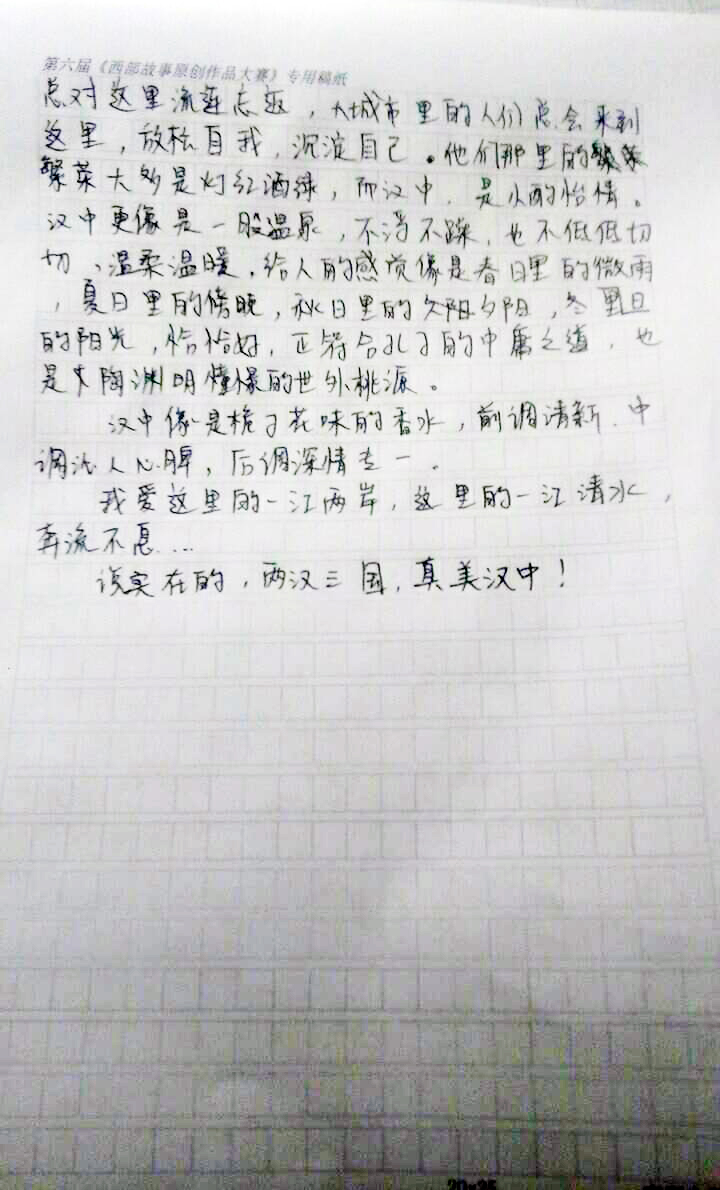 第六届《西部故事原创作品大赛》专用稿纸
总对这里流连忘返，大城市里的人们总会来到
这里，放松自我，沉淀自己。他们那里的
繁荣大多是灯红酒绿，而汉中，是小酌怡情。
汉中更像是一股温泉，不滂不躁，也不低低切
切、温柔温暖，给人的感觉像是春日里的微雨
，夏日里的傍晚，秋日里的夕阳，冬里日
的阳光，恰恰好，正符合孔子的中庸之道，也
是大陶渊明憧憬的世外桃源。
汉中像是栀子花味的香水，前调清新，中
调沁人心脾，后调深情专一。
我爱这里的一江两岸，这里的一江清水，
奔流不息....
说实在的，两汉三国，真美汉中！
20×25